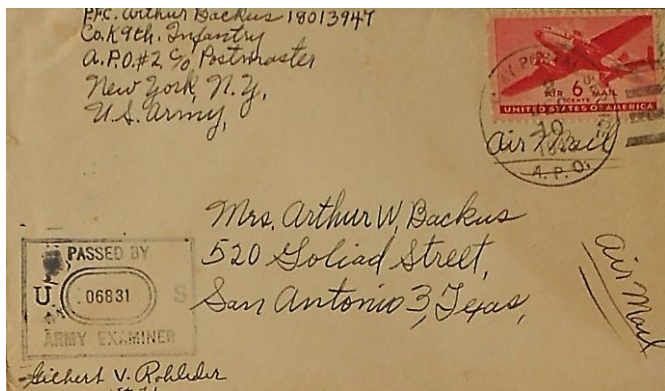 P.F.C. Arthur Backus 18013947
Co. K 9th. Infantry
A.P.O.#2, c/o Postmaster
New York, N.Y.
U.S. Army,
AIR 6 MAIL
CENTS
UNITED STATES OF AMERICA
A.P.O.
10
Air Mail
Mrs. Arthur W. Backus
520 Goliad Street,
San Antonio 3, Texas,
Air Mail
PASSED BY
U. 06831 S
ARMY EXAMINER
Gilbert V. Rohleder